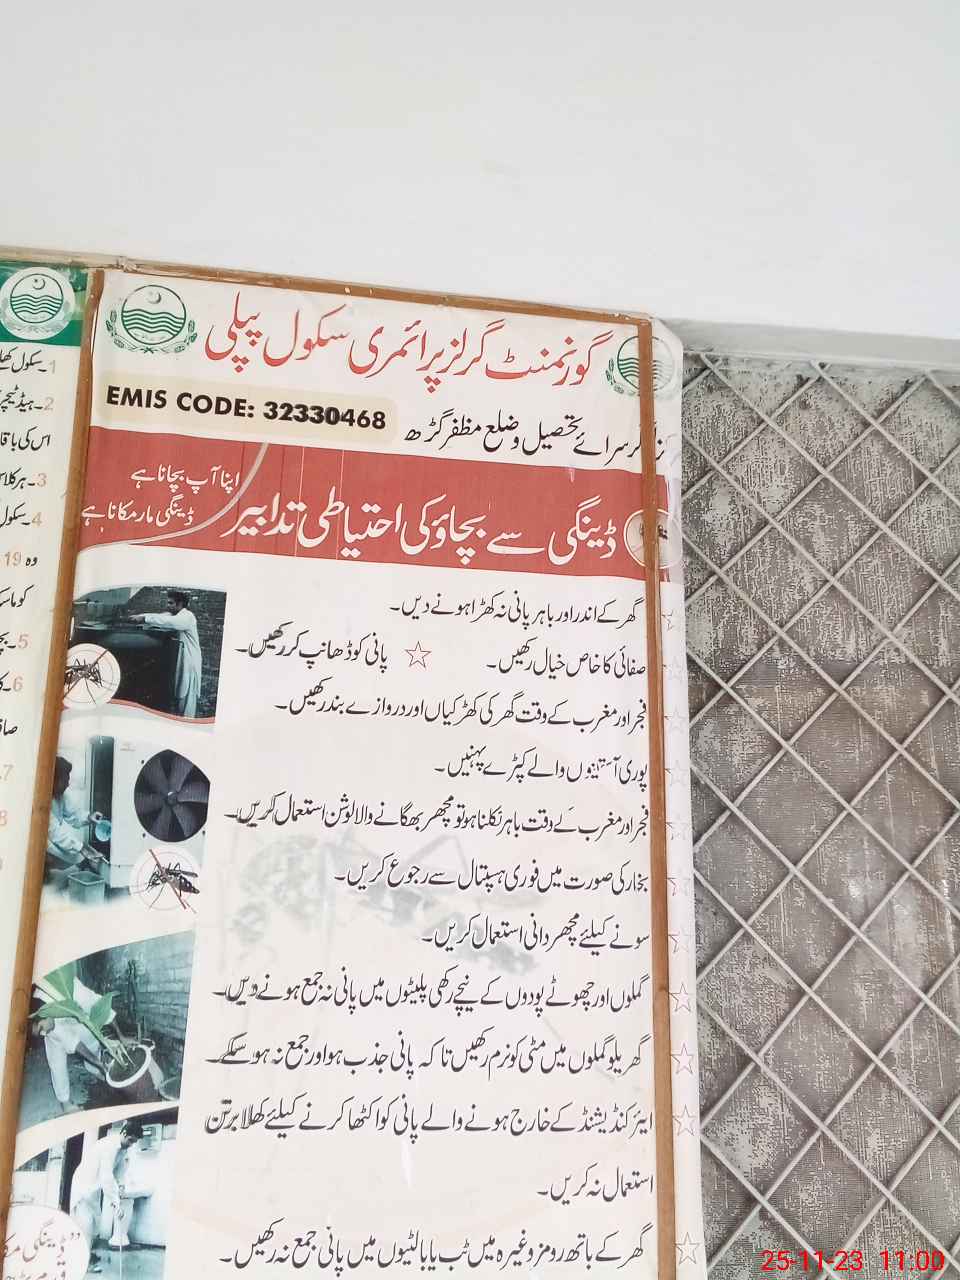 گورنمنٹ گرلز پرائمری سکول پپلی
EMIS CODE: 32330468
سرائے تحصیل و ضلع مظفر گڑھ
اپنا آپ بچانا ہے
ڈینگی مار مکانا ہے
ڈینگی سے بچاؤ کی احتیاطی تدابیر
گھر کے اندر اور باہر پانی نہ کھڑا ہونے دیں۔
صفائی کا خاص خیال رکھیں۔ ☆ پانی کو ڈھانپ کر رکھیں۔
فجر اور مغرب کے وقت گھر کی کھڑکیاں اور دروازے بند رکھیں۔
پوری آستینوں والے کپڑے پہنیں۔
فجر اور مغرب کے وقت باہر نکلنا ہو تو مچھر بھگانے والا لوشن استعمال کریں۔
بخار کی صورت میں فوری ہسپتال سے رجوع کریں۔
سونے کیلئے مچھر دانی استعمال کریں۔
گملوں اور چھوٹے پودوں کے نیچے رکھی پلیٹوں میں پانی نہ جمع ہونے دیں۔
گھریلو گملوں میں مٹی کو نرم رکھیں تاکہ پانی جذب ہو اور جمع نہ ہو سکے۔
ایئر کنڈیشنڈ کے خارج ہونے والے پانی کو اکٹھا کرنے کیلئے کھلا برتن
استعمال نہ کریں۔
گھر کے باتھ رومز وغیرہ میں ٹب یا بالٹیوں میں پانی جمع نہ رکھیں۔
1۔ سکول
2۔ ہیڈ ٹیچر
اس کی
3۔ ہر کلاس
4۔ سکول
وہ 19
5۔
6۔
7۔
8
"ڈینگی
25-11-23 11:00